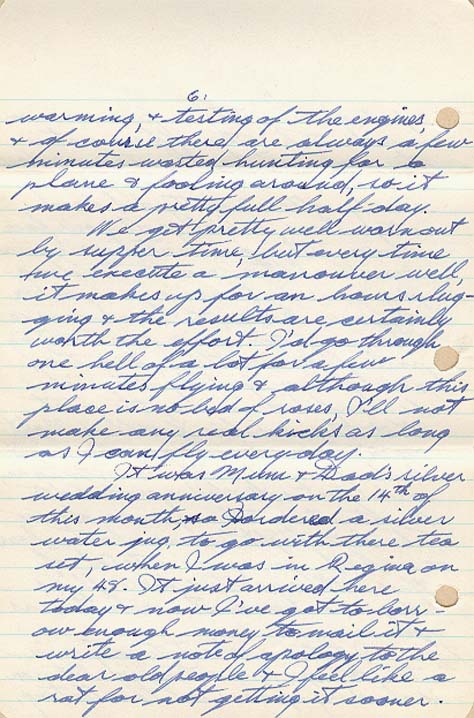 6.
warming, & testing of the engines,
& of course there are always a few
minutes wasted hunting for a
plane & fooling around, so it
makes a pretty full half-day.
We get pretty well worn out
by supper time, but every time
we execute a manouver well,
it makes up for an hours slug-
ging & the results are certainly
worth the effort. I'd go through
one hell of a lot for a few
minutes flying & although this
place is no bed of roses, I'll not
make any real kicks as long
as I can fly every day.
It was Mum & Dad's silver
wedding anniversary on the 14th of
this month, so I ordered a silver
water jug, to go with there tea
set, when I was in Regina on
my 48. It just arrived here
today & now I've got to borr-
ow enough money to mail it &
write a note of apology to the
dear old people & I feel like a
rat for not getting it sooner.